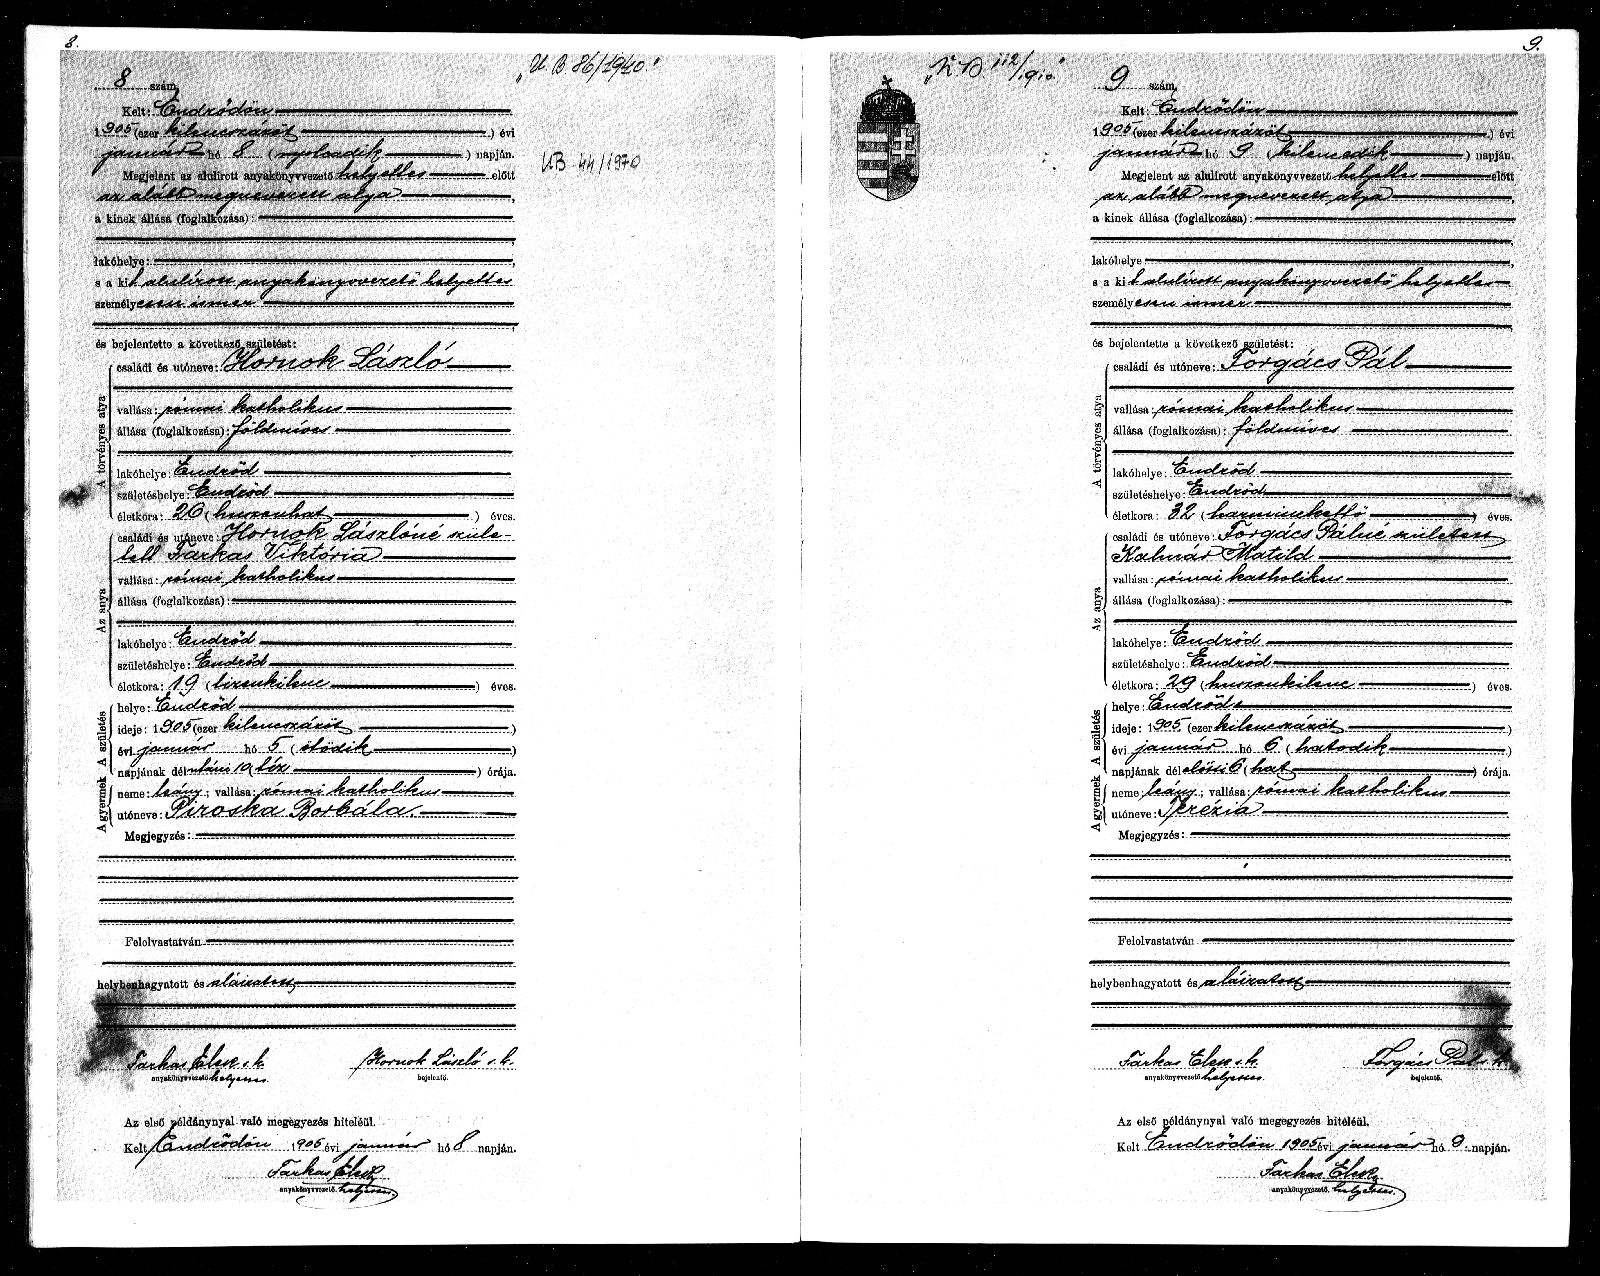 8.
8 szám.
"U B 86/1940."
UB 44/1970
Kelt: Endrődön
1905 (ezer kilenczszázöt) évi
január hó 8 (nyolcadik) napján.
Megjelent az alulírott anyakönyvvezető helyettes előtt
az alább megnevezett atya,
a kinek állása (foglalkozása):
lakóhelye:
s a kit alulírott anyakönyvvezető helyettes
személyesen ismer
és bejelentette a következő születést:
A törvényes atya
családi és utóneve: Hornok László
vallása: római katholikus
állása (foglalkozása): földmíves
lakóhelye: Endrőd
születéshelye: Endrőd
életkora: 26 (huszonhat) éves.
Az anya
családi és utóneve: Hornok Lászlóné szüle-
tett Farkas Viktória
vallása: római katholikus
állása (foglalkozása):
lakóhelye: Endrőd
születéshelye: Endrőd
életkora: 19 (tizenkilenc) éves.
A születés
helye: Endrőd
ideje: 1905 (ezer kilenczszázöt)
évi január hó 5 (ötödik)
napjának délutáni 10 (tíz) órája.
A gyermek
neme: leány; vallása: római katholikus
utóneve: Piroska Borbála.
Megjegyzés:
Felolvastatván
helybenhagyatott és aláiratott
Farkas Elek s.k. Hornok László s.k.
anyakönyvvezető helyettes. bejelentő.
Az első példánynyal való megegyezés hiteléül.
Kelt Endrődön 1905 évi január hó 8 napján.
Farkas Elek
anyakönyvvezető helyettes.
9.
"K.D. 112/1910"
9 szám.
Kelt: Endrődön
1905 (ezer kilenczszázöt) évi
január hó 9 (kilencedik) napján.
Megjelent az alulírott anyakönyvvezető helyettes előtt
az alább megnevezett atya,
a kinek állása (foglalkozása):
lakóhelye
s a kit alulírott anyakönyvvezető helyettes
személyesen ismer
és bejelentette a következő születést:
A törvényes atya
családi és utóneve: Forgács Pál
vallása: római katholikus
állása (foglalkozása): földmíves
lakóhelye: Endrőd
születéshelye: Endrőd
életkora: 32 (harminckettő) éves.
Az anya
családi és utóneve: Forgács Pálné született
Kalmár Matild
vallása: római katholikus
állása (foglalkozása):
lakóhelye: Endrőd
születéshelye: Endrőd
életkora: 29 (huszonkilenc) éves.
A születés
helye: Endrőd
ideje: 1905 (ezer kilenczszázöt)
évi január hó 6 (hatodik)
napjának délelőtti 6 (hat) órája.
A gyermek
neme: leány; vallása: római katholikus
utóneve: Terézia
Megjegyzés:
Felolvastatván
helybenhagyatott és aláiratott
Farkas Elek s.k. Forgács Pál s.k.
anyakönyvvezető helyettes. bejelentő.
Az első példánynyal való megegyezés hiteléül.
Kelt Endrődön 1905 évi január hó 9 napján.
Farkas Elek
anyakönyvvezető helyettes.